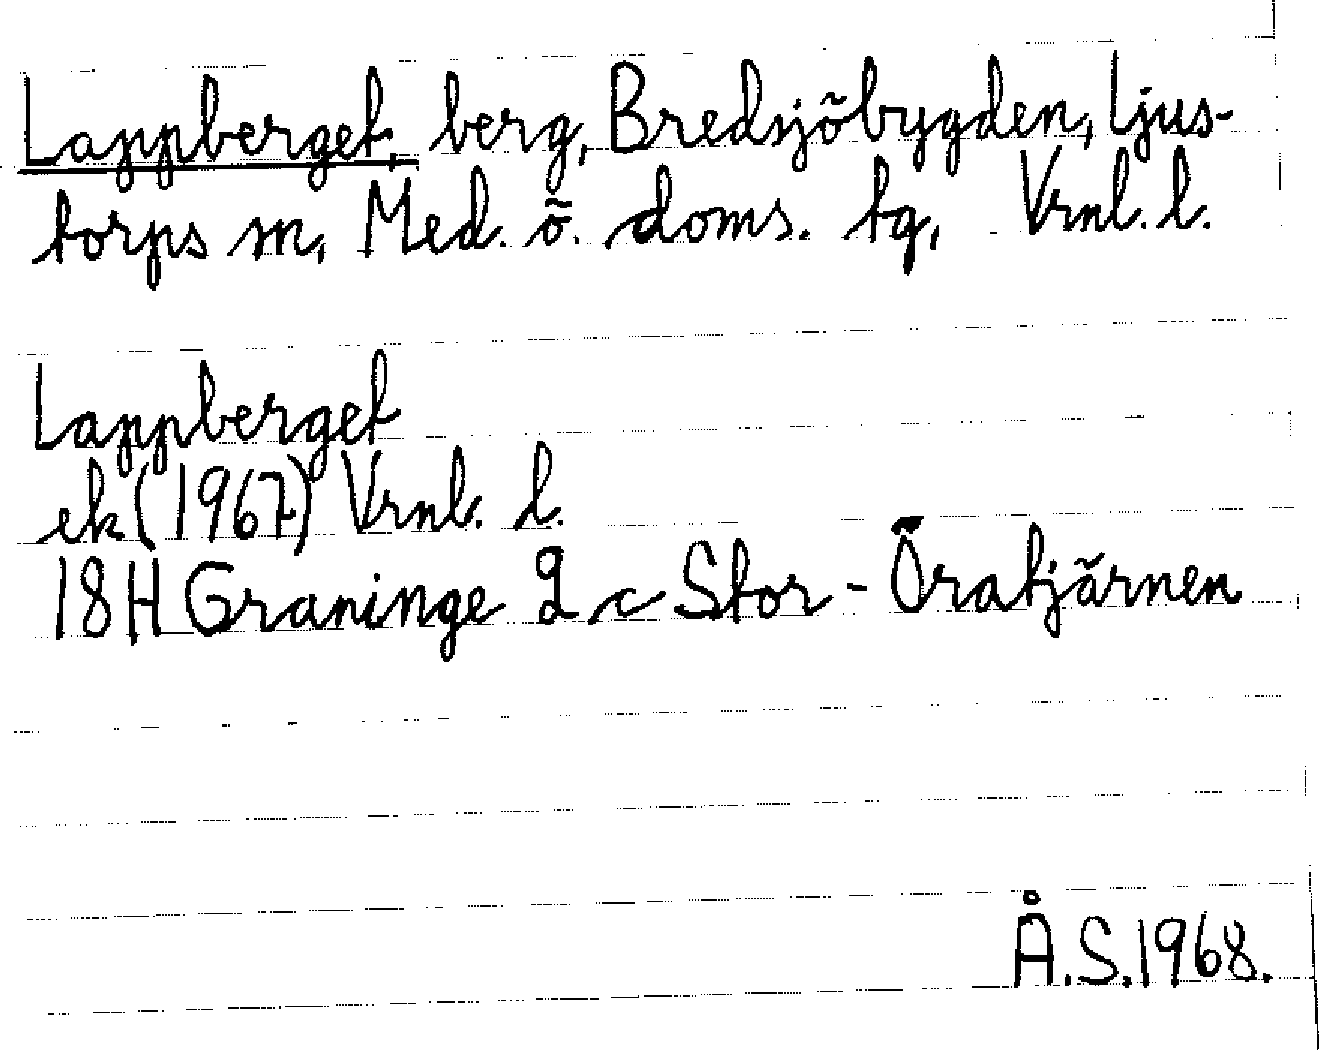 Lappberget, berg, Bredsjöbygden, Ljus-
torps sn, Med. ö. doms. tg, Vrnl. l.
Lappberget
ek (1967) Vrnl. l.
18H Graninge 2 c Stor-Öratjärnen
Å.S.1968.